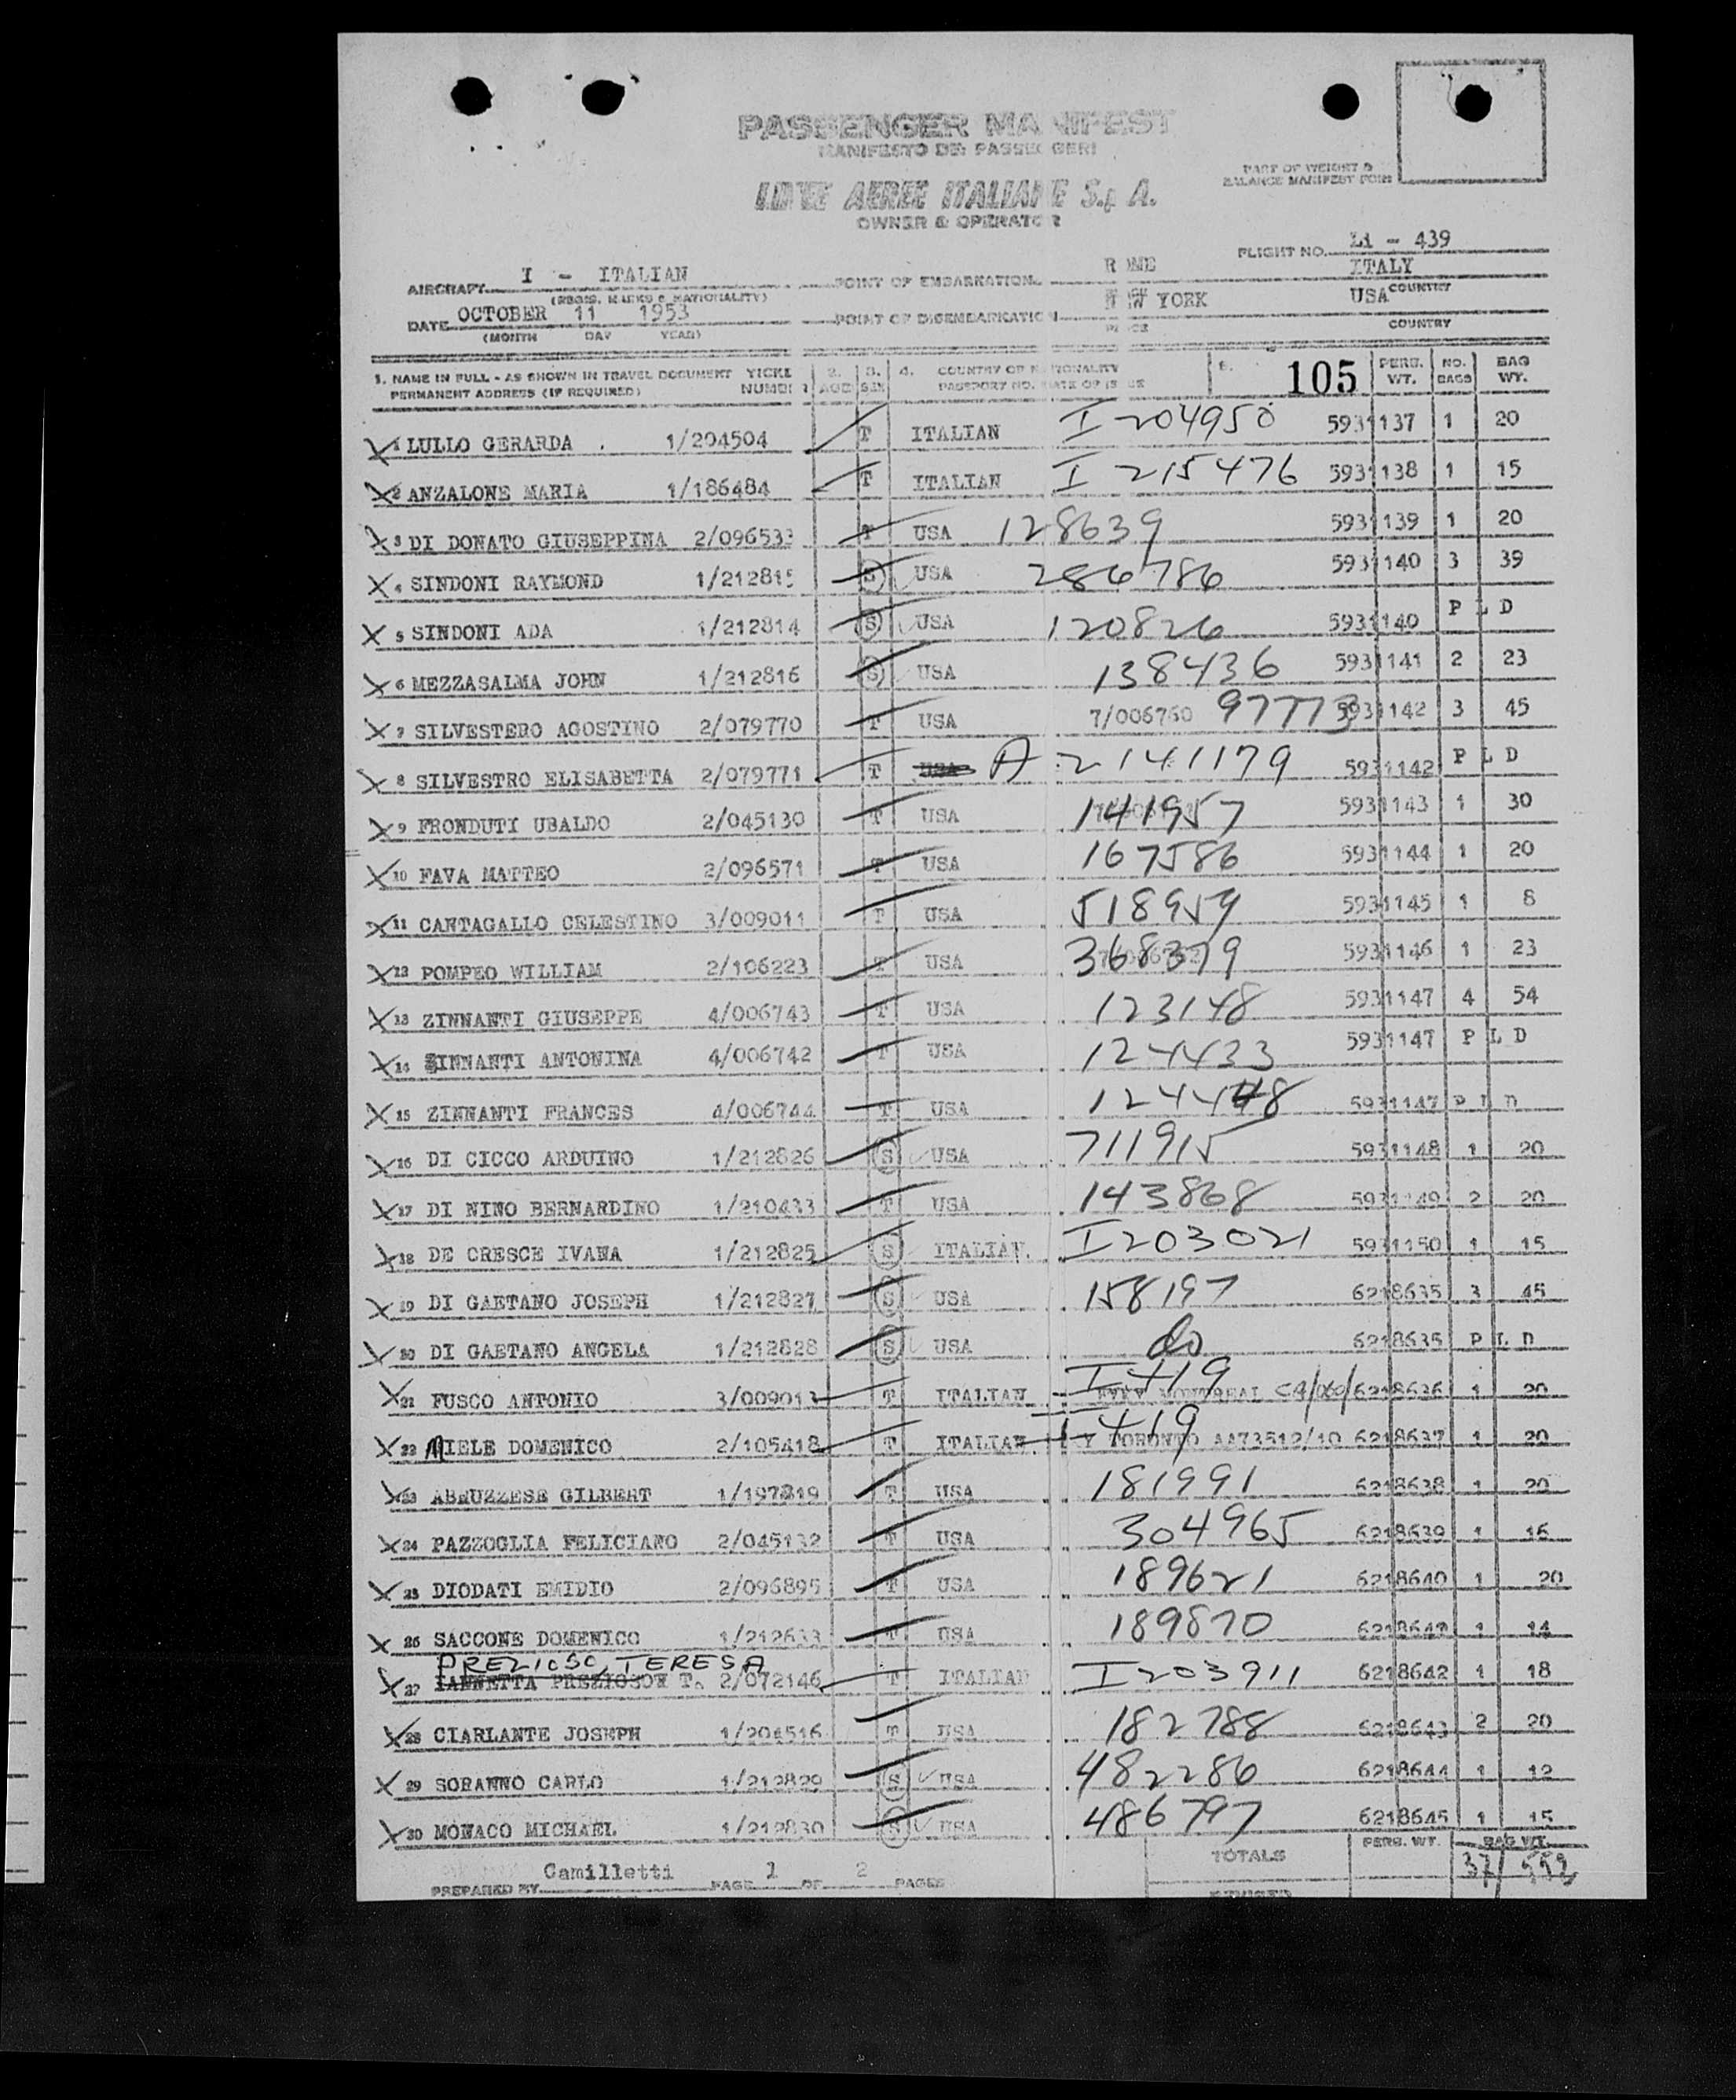 PASSENGER MANIFEST
MANIFESTO DEI PASSEGGERI
PART OF WEIGHT &
BALANCE MANIFEST FORM
LINEE AEREE ITALIANE S.p.A.
OWNER & OPERATOR
FLIGHT NO. Li - 439
AIRCRAFT I - ITALIAN POINT OF EMBARKATION ROME ITALY
(REGIS. MARKS & NATIONALITY) COUNTRY
DATE OCTOBER 11 1953 POINT OF DISEMBARKATION NEW YORK USA
(MONTH DAY YEAR) PLACE COUNTRY
1. NAME IN FULL - AS SHOWN IN TRAVEL DOCUMENT TICKET 2. 3. 4. COUNTRY OF NATIONALITY 5. 105 PERS. NO. BAG
PERMANENT ADDRESS (IF REQUIRED) NUMBER AGE SEX PASSPORT NO. DATE OF ISSUE WT. BAGS WT.
1 LULLO GERARDA . 1/204504 T ITALIAN I 204950 5931137 1 20
2 ANZALONE MARIA 1/186484 T ITALIAN I 215476 5931138 1 15
3 DI DONATO GIUSEPPINA 2/096533 T USA 128639 5931139 1 20
4 SINDONI RAYMOND 1/212815 S USA 286786 5931140 3 39
5 SINDONI ADA 1/212814 S USA 120826 5931140 P L D
6 MEZZASALMA JOHN 1/212816 S USA 138436 5931141 2 23
7 SILVESTERO AGOSTINO 2/079770 T USA 7/006760 97773 5931142 3 45
8 SILVESTRO ELISABETTA 2/079771 T USA A 2141179 5931142 P L D
9 FRONDUTI UBALDO 2/045130 T USA 141957 5931143 1 30
10 FAVA MATTEO 2/096571 T USA 167586 5931144 1 20
11 CANTAGALLO CELESTINO 3/009011 T USA 518959 5931145 1 8
12 POMPEO WILLIAM 2/106223 T USA 368379 5931146 1 23
13 ZINNANTI GIUSEPPE 4/006743 T USA 123148 5931147 4 54
14 ZINNANTI ANTONINA 4/006742 T USA 124433 5931147 P L D
15 ZINNANTI FRANCES 4/006744 T USA 124448 5931147 P L D
16 DI CICCO ARDUINO 1/212826 S USA 711915 5931148 1 20
17 DI NINO BERNARDINO 1/210433 T USA 143868 5931149 2 20
18 DE CRESCE IVANA 1/212825 S ITALIAN I203021 5931150 1 15
19 DI GAETANO JOSEPH 1/212827 S USA 158197 6218635 3 45
20 DI GAETANO ANGELA 1/212828 S USA do 6218635 P L D
21 FUSCO ANTONIO 3/009013 T ITALIAN I 419 MONTREAL 6218636 1 20
22 MIELE DOMENICO 2/105418 T ITALIAN I 419 TORONTO AA73512/10 6218637 1 20
23 ABRUZZESE GILBERT 1/197819 T USA 181991 6218638 1 20
24 PAZZOGLIA FELICIANO 2/045132 T USA 304965 6218639 1 16
25 DIODATI EMIDIO 2/096895 T USA 189621 6218640 1 20
26 SACCONE DOMENICO 1/212633 T USA 189870 6218641 1 14
PREZIOSO, TERESA
27 IANNETTA PREZIOSOW T. 2/072146 T ITALIAN I203911 6218642 1 18
28 CIARLANTE JOSEPH 1/204516 T USA 182788 6218643 2 20
29 SORANNO CARLO 1/212829 S USA 482286 6218644 1 12
30 MONACO MICHAEL 1/212830 S USA 486797 6218645 1 15
TOTALS PERS. WT. BAG WT.
37/552
PREPARED BY Camilletti PAGE 1 OF 2 PAGES